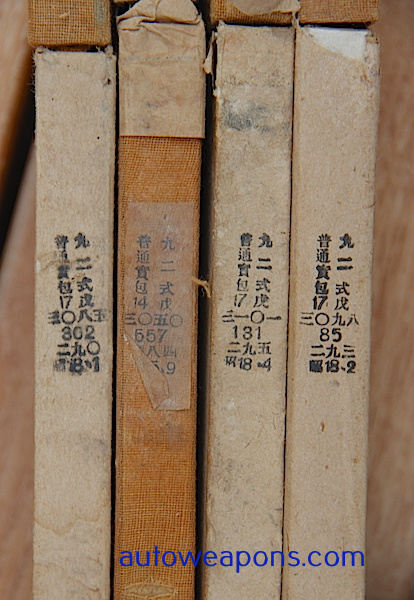 九二式戊
普通實包
17
三〇八五
302
二九〇
18.1
九二式戊
普通實包
14
三〇五〇
八四
9
九二式戊
普通實包
17
三一〇一
131
二九五
昭18.4
九二式戊
普通實包
17
三〇九八
85
二九三
昭18.2
autoweapons.com